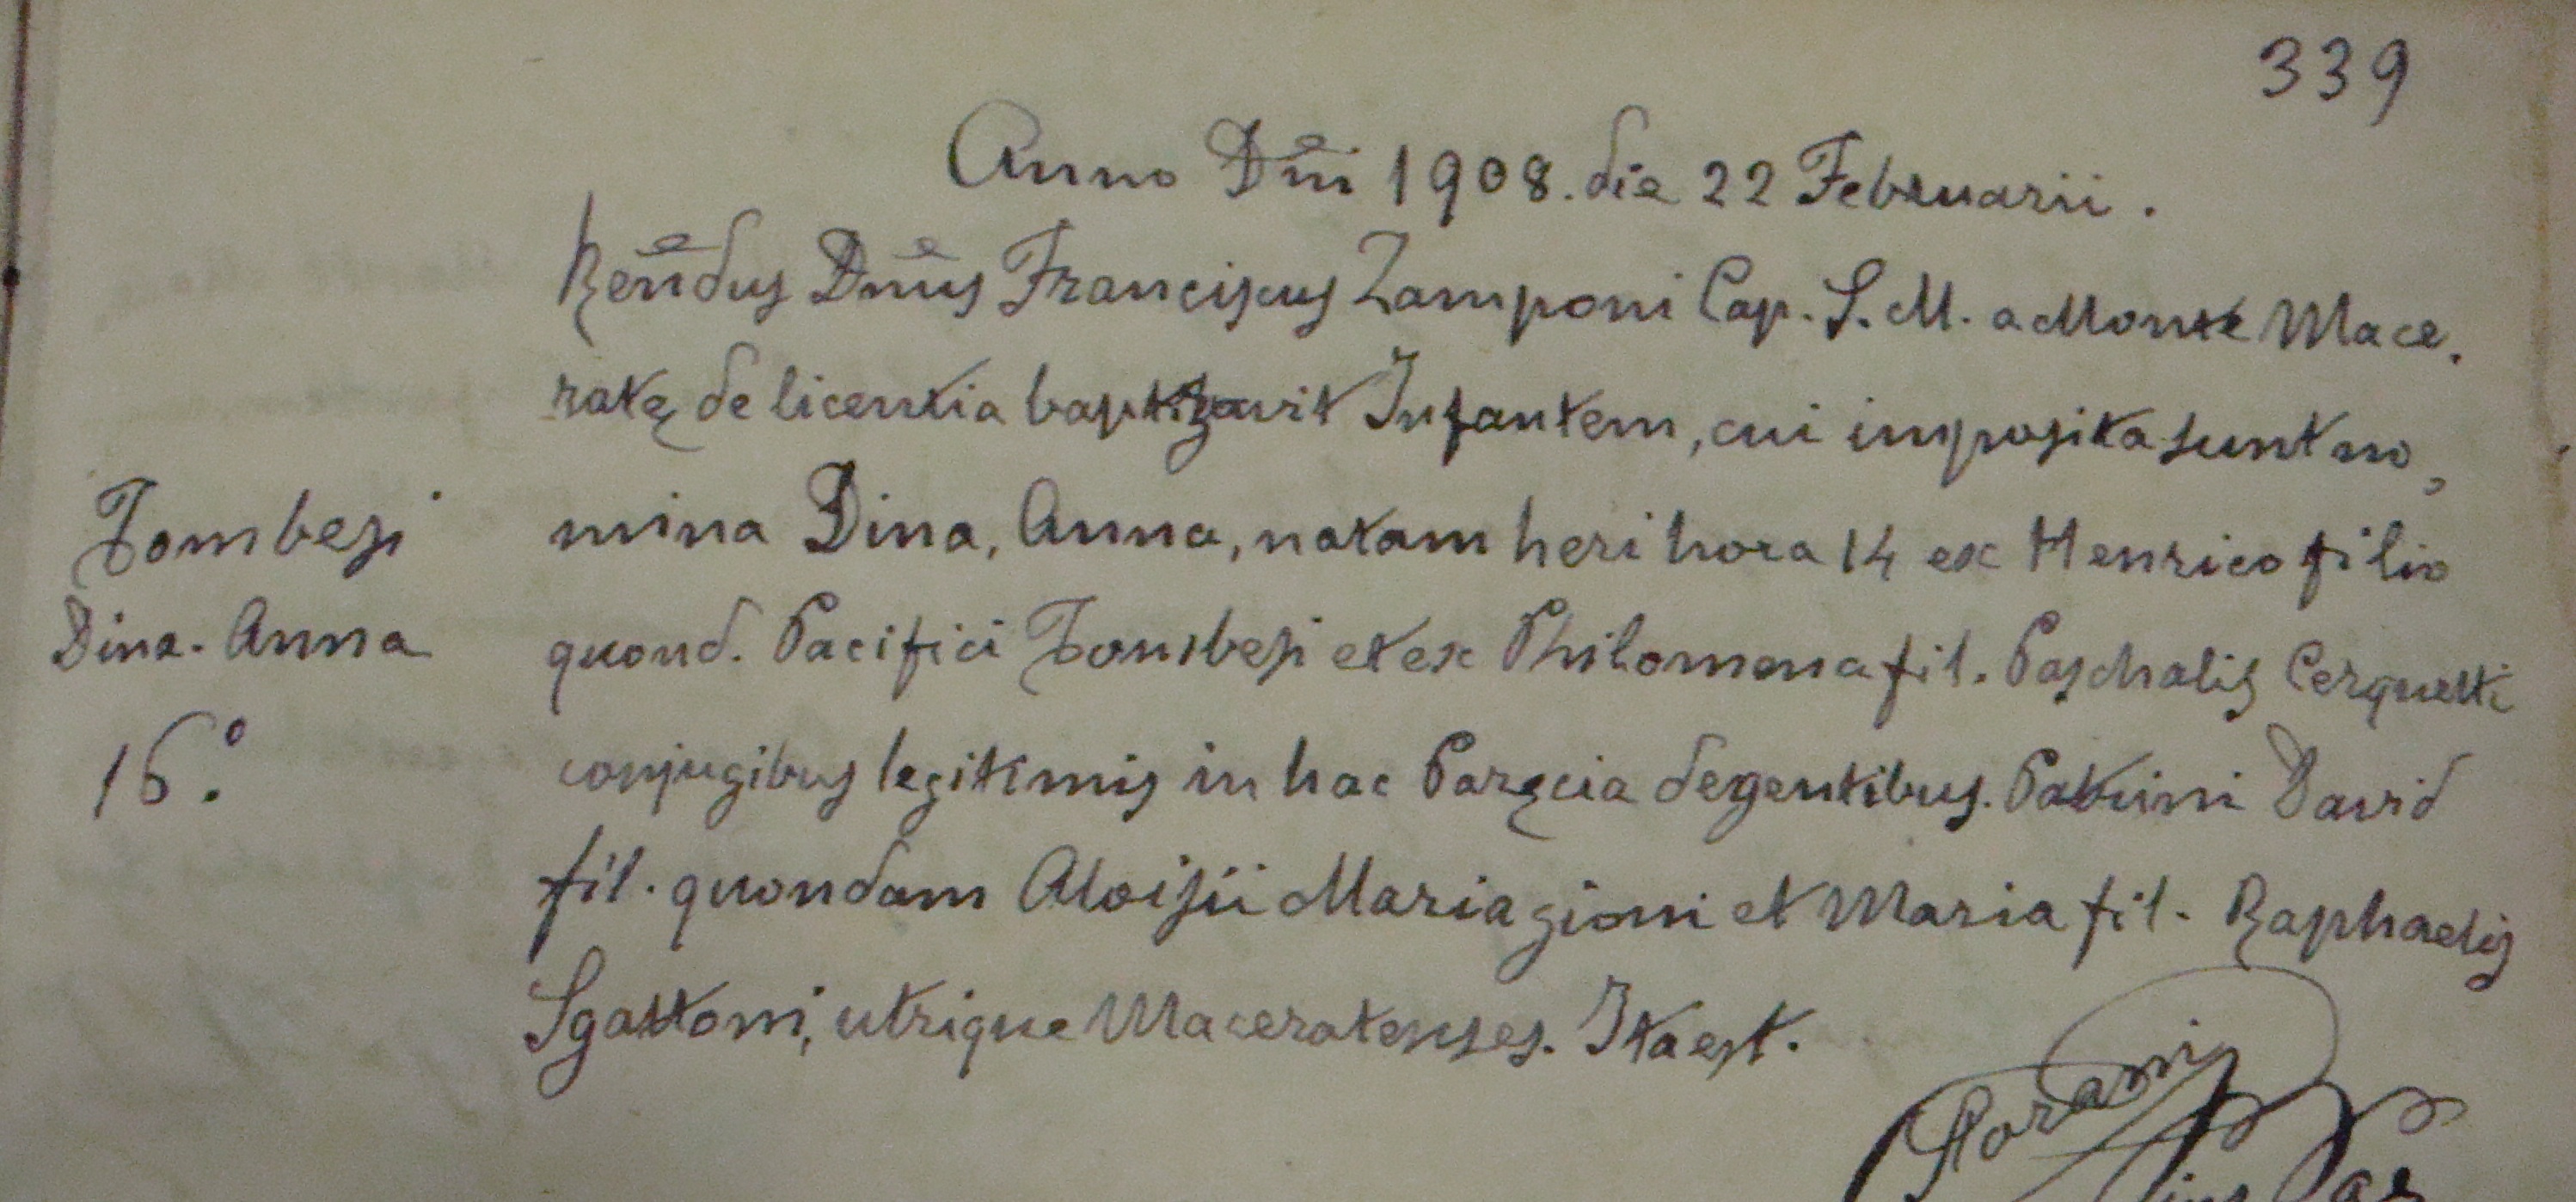 339
Anno Dñi 1908. die 22 Februarii.
Reñdus Dñus Franciscus Zamponi Cap. S. M. a Monte Mace.
ratę de licentia baptizavit Infantem, cui imposita sunt no,
Tombesi
mina Dina, Anna, natam heri hora 14 ex Henrico filio
Dina. Anna
quond. Pacifici Tombesi et ex Philomena fil. Paschalis Cerquetti
16.°
conjugibus legitimis in hac Paręcia degentibus. Patrini David
fil. quondam Aloisii Mariagioni et Maria fil. Raphaelis
Sgattoni, utrique Maceratenses. Ita est.